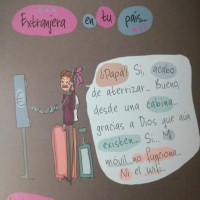 Extranjera en tu país...
¡¡Papá! Sí, acabo
de aterrizar... Bueno,
desde una cabina...
gracias a Dios que aún
existen... Sí... Mi
móvil... no funciona...
Ni el wifi...